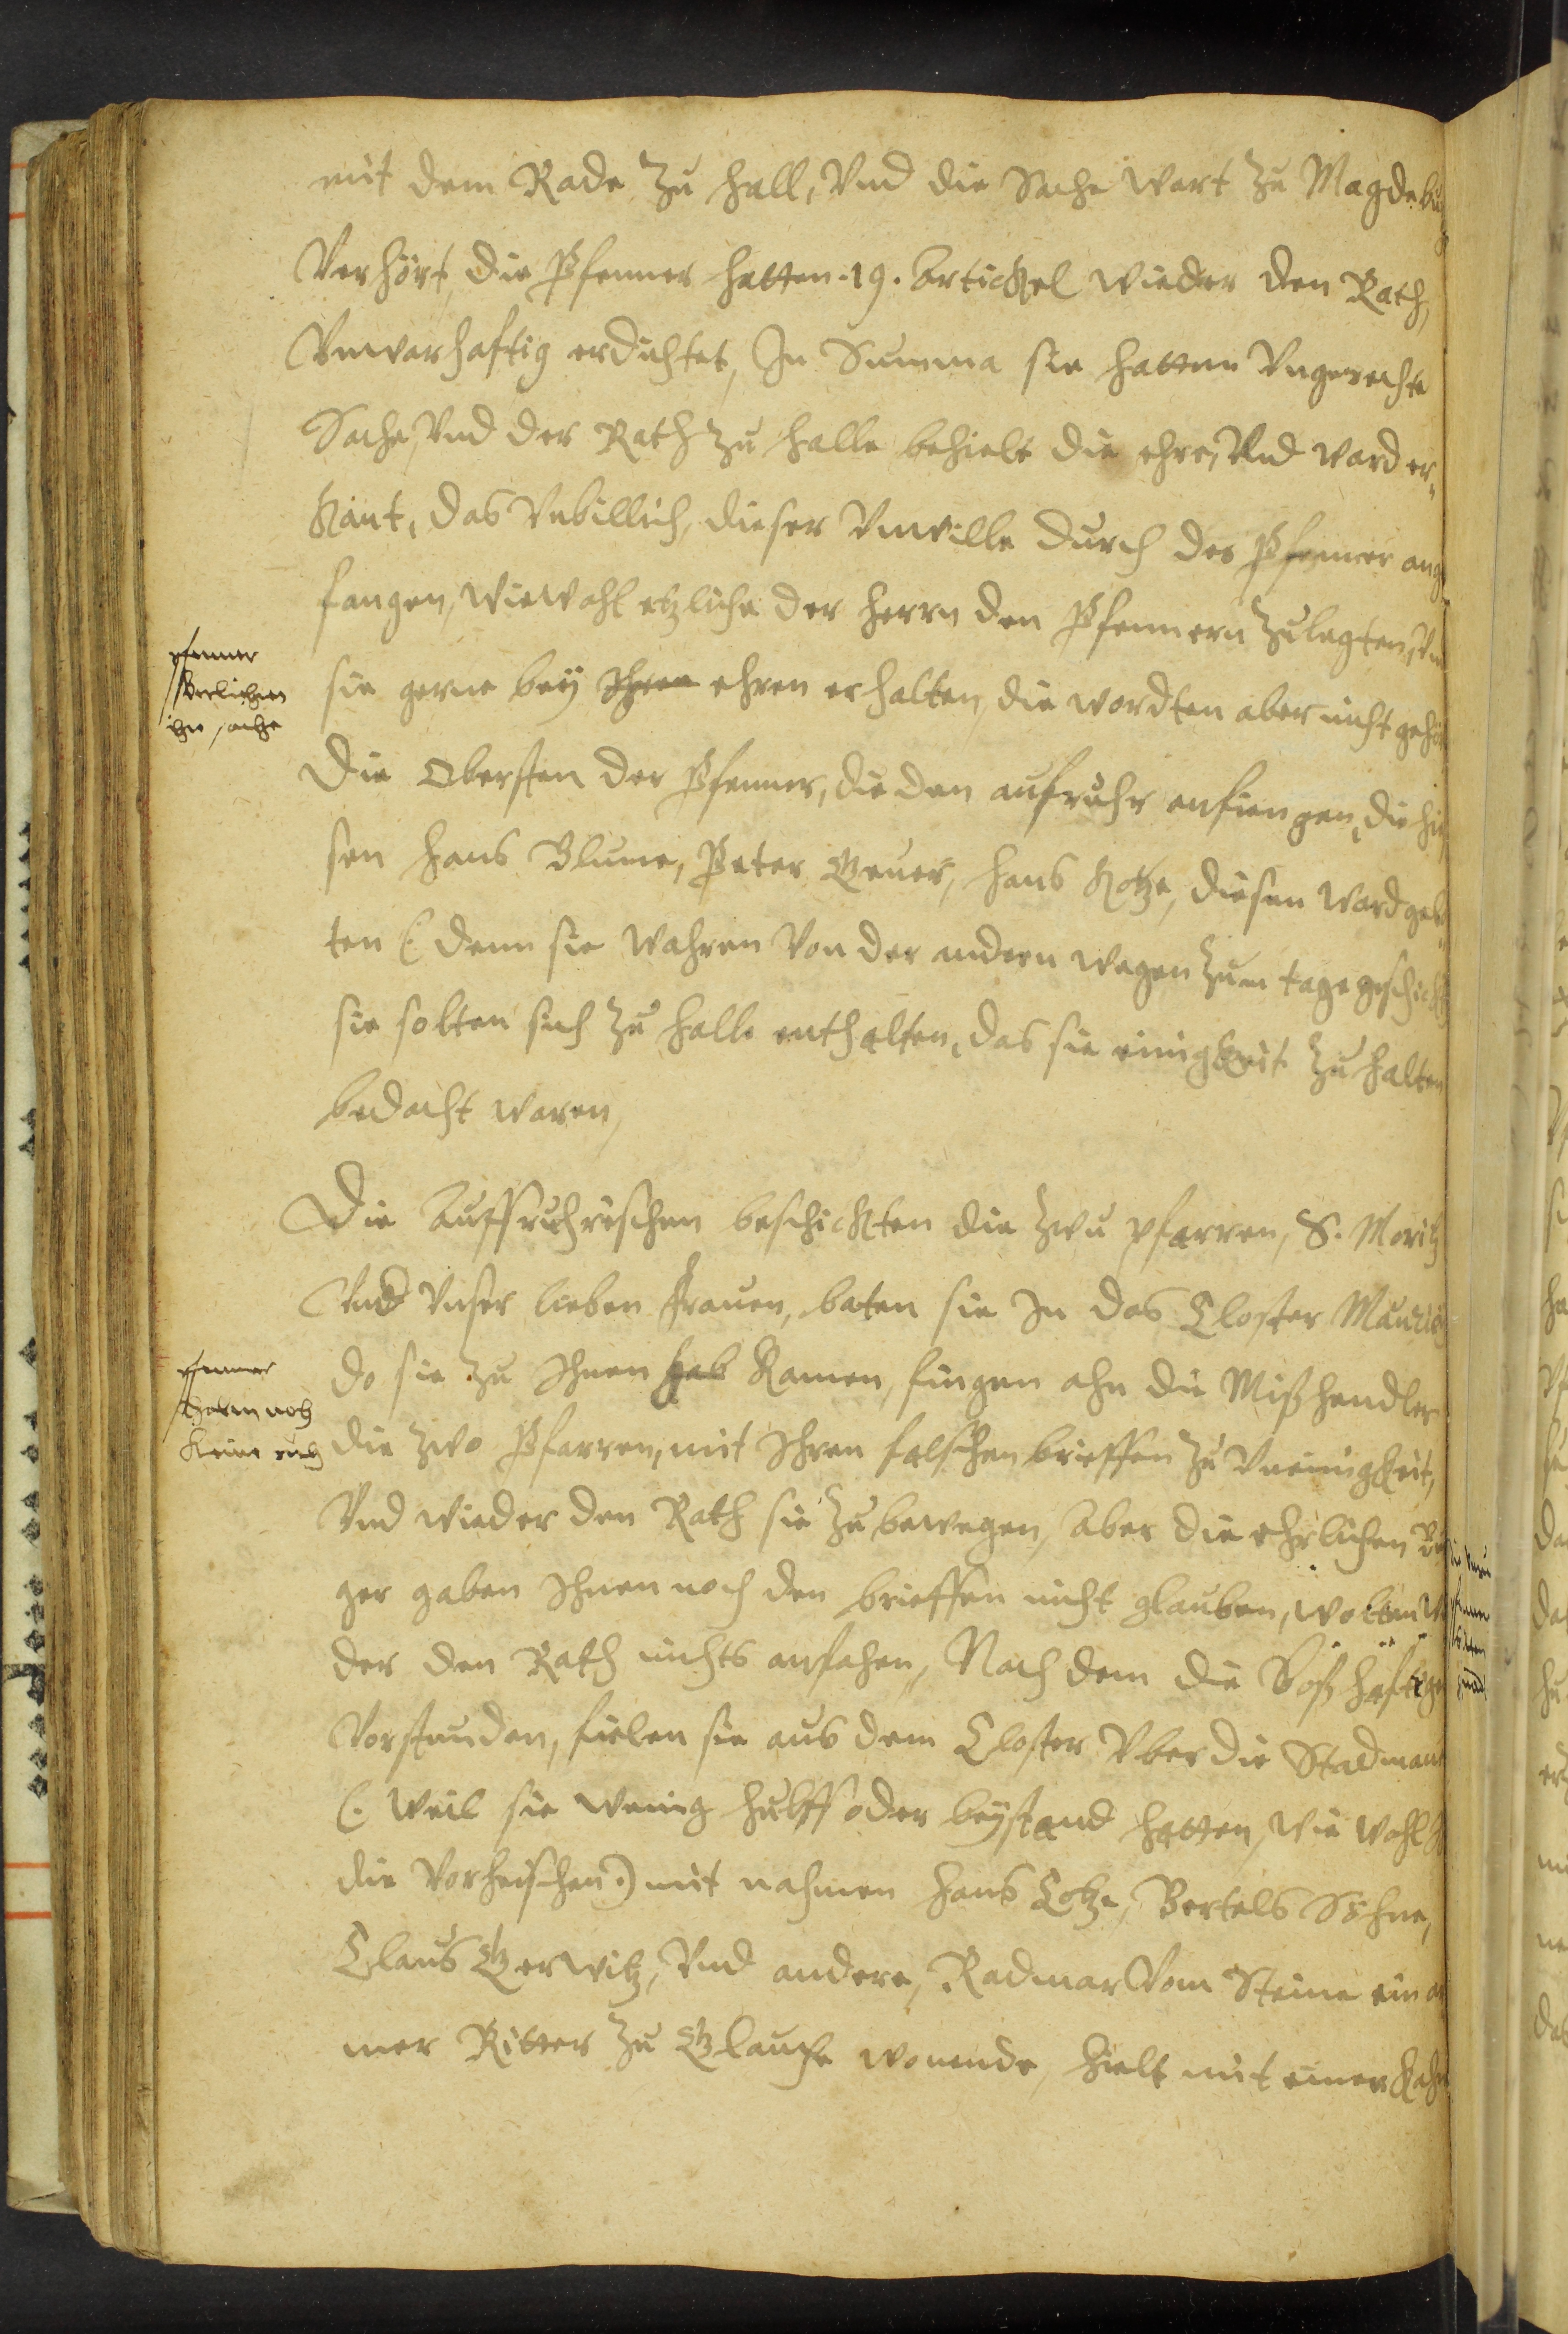 mit dem Rade zu Hall, Vnd die Sache wart zu Magdebu
Verhört, die Pfenner hatten .19. Artickel wieder den Rath,
Vnwarhaftig erdichtet, In Summa sie hatten Vngerechte
Sache, Vnd der Rath zu Halle behielt die ehre, Vnd ward er„
kant, das Vnbillich, dieser Vnwille durch des Pfenner ang
fangen, Wiewohl etzliche der Herrn den Pfennern zulegten, Vn
sie gerne bey Ihren ehren erhalten, die wordten aber nicht gehö
Die Obersten der Pfenner, die den aufruhr anfiengen, die hie
sen Hans Blume, Peter Beuer, Hans Kotze, diesen ward geb
ten (: denn sie wahren Von der andern wegen zum tage geschickt
sie solten sich zu Halle enthalten, das sie einigkeit zu halten
bedacht waren,
Die Auffruhrischen beschickten die zwu pfarren, S. Moritz
Vnd Vnser lieben Frauen, baten sie In das Closter Mauric
do sie zu Ihnen hab Kamen, fingen ahn die Mißhendler
die zwo Pfarren, mit Ihren falschen brieffen zu Vneinigkeit,
Vnd wieder den Rath sie zu bewegen, Aber die ehrlichen Bü
ger gaben Ihnen noch den brieffen nicht glauben, wolten Wi
der den Rath nichts anfahen, Nach dem die Boßhäftige
Vorstunden, fielen sie aus dem Closter Vber die Stadmaur
(: Weil sie wenig hülff oder beystand hatten, wie wohl
die Vorheischen :) mit nahmen Hans Cotze, Bertels Söhne,
Claus Gerwitz, Vnd andere, Radmar Vom Steine ein ar
mer Ritter zu Glauche wonende, hielt mit einer Kahn
pfenner
Verlieren
ihre sache
pfenner
haben noch
Keine ruh